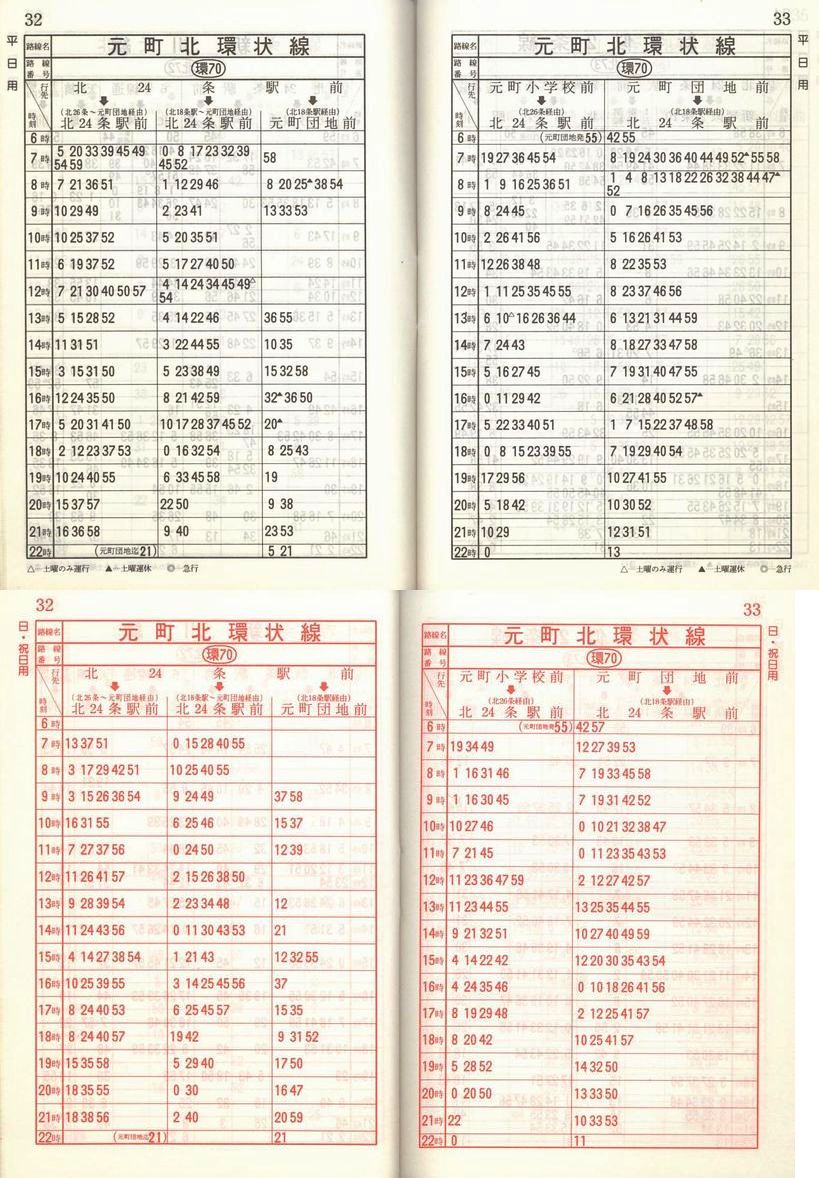 32
平日用
路線名 元町北環状線
路線番号 環70
行先 時刻
北 24 条 駅 前
(北26条～元町団地経由) 北24条駅前
(北18条駅～元町団地経由) 北24条駅前
(北18条駅経由) 元町団地前
6時
7時 5 20 33 39 45 49 54 59 | 0 8 17 23 32 39 45 52 | 58
8時 7 21 36 51 | 1 12 29 46 | 8 20 25▲ 38 54
9時 10 29 49 | 2 23 41 | 13 33 53
10時 10 25 37 52 | 5 20 35 51
11時 6 19 37 52 | 5 17 27 40 50
12時 7 21 30 40 50 57 | 4 14 24 34 45 49△ 54
13時 5 15 28 52 | 4 14 22 46 | 36 55
14時 11 31 51 | 3 22 44 55 | 10 35
15時 3 15 31 50 | 5 23 38 49 | 15 32 58
16時 12 24 35 50 | 8 21 42 59 | 32▲ 36 50
17時 5 20 31 41 50 | 10 17 28 37 45 52 | 20▲
18時 2 12 23 37 53 | 0 16 32 54 | 8 25 43
19時 10 24 40 55 | 6 33 45 58 | 19
20時 15 37 57 | 22 50 | 9 38
21時 16 36 58 | 9 40 | 23 53
22時 (元町団地迄21) | 5 21
△―土曜のみ運行 ▲―土曜運休 ◎―急行
33
平日用
路線名 元町北環状線
路線番号 環70
行先 時刻
元町小学校前 (北26条経由) 北24条駅前
元町団地前 (北18条駅経由) 北24条駅前
6時 (元町団地発55) | 42 55
7時 19 27 36 45 54 | 8 19 24 30 36 40 44 49 52▲ 55 58
8時 1 9 16 25 36 51 | 1 4 8 13 18 22 26 32 38 44 47▲ 52
9時 8 24 45 | 0 7 16 26 35 45 56
10時 2 26 41 56 | 5 16 26 41 53
11時 12 26 38 48 | 8 22 35 53
12時 1 11 25 35 45 55 | 8 23 37 46 56
13時 6 10△ 16 26 36 44 | 6 13 21 31 44 59
14時 7 24 43 | 8 18 27 33 47 58
15時 5 16 27 45 | 7 19 31 40 47 55
16時 0 11 29 42 | 6 21 28 40 52 57▲
17時 5 22 33 40 51 | 1 7 15 22 37 48 58
18時 0 8 15 23 39 55 | 7 19 29 40 54
19時 17 29 56 | 10 27 41 55
20時 5 18 42 | 10 30 52
21時 10 29 | 12 31 51
22時 0 | 13
△―土曜のみ運行 ▲―土曜運休 ◎―急行
32
日・祝日用
路線名 元町北環状線
路線番号 環70
行先 時刻
北 24 条 駅 前
(北26条～元町団地経由) 北24条駅前
(北18条駅～元町団地経由) 北24条駅前
(北18条駅経由) 元町団地前
6時
7時 13 37 51 | 0 15 28 40 55
8時 3 17 29 42 51 | 10 25 40 55
9時 3 15 26 36 54 | 9 24 49 | 37 58
10時 16 31 55 | 6 25 46 | 15 37
11時 7 27 37 56 | 0 24 50 | 12 39
12時 11 26 41 57 | 2 15 26 38 50
13時 9 28 39 54 | 2 23 34 48 | 12
14時 11 24 43 56 | 0 11 30 43 53 | 21
15時 4 14 27 38 54 | 1 21 43 | 12 32 55
16時 10 25 39 55 | 3 14 25 45 56 | 37
17時 8 24 40 53 | 6 25 45 57 | 15 35
18時 8 24 40 57 | 19 42 | 9 31 52
19時 15 35 58 | 5 29 40 | 17 50
20時 18 35 55 | 0 30 | 16 47
21時 18 38 56 | 2 40 | 20 59
22時 (元町団地迄21) | 21
33
日・祝日用
路線名 元町北環状線
路線番号 環70
行先 時刻
元町小学校前 (北26条経由) 北24条駅前
元町団地前 (北18条駅経由) 北24条駅前
6時 (元町団地発55) | 42 57
7時 19 34 49 | 12 27 39 53
8時 1 16 31 46 | 7 19 33 45 58
9時 1 16 30 45 | 7 19 31 42 52
10時 10 27 46 | 0 10 21 32 38 47
11時 7 21 45 | 0 11 23 35 43 53
12時 11 23 36 47 59 | 2 12 27 42 57
13時 11 23 44 55 | 13 25 35 44 55
14時 9 21 32 51 | 10 27 40 49 59
15時 4 14 22 42 | 12 20 30 35 43 54
16時 4 24 35 46 | 0 10 18 26 41 56
17時 8 19 29 48 | 2 12 25 41 57
18時 8 20 42 | 10 25 41 57
19時 5 28 52 | 14 32 50
20時 0 20 50 | 13 33 50
21時 22 | 10 33 53
22時 0 | 11